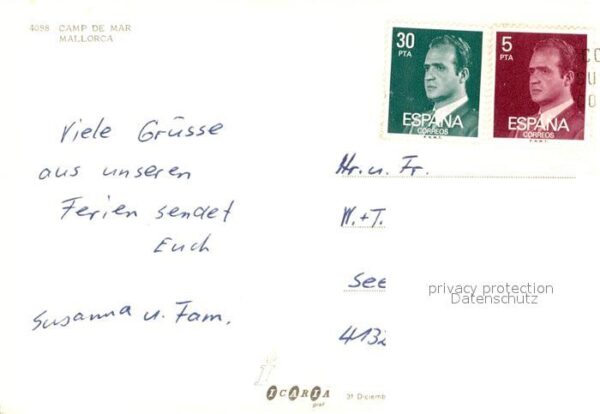 4098 CAMP DE MAR
MALLORCA
30
PTA
ESPAÑA
CORREOS
F.N.M.T.
5
PTA
ESPAÑA
CORREOS
F.N.M.T.
CO
SU
CO
Viele Grüsse
aus unseren
Ferien sendet
Euch
Susanna u. Fam.
Hr. u. Fr.
W. + T.
See
4132
privacy protection
Datenschutz
ICARIA
graf
31 Diciemb